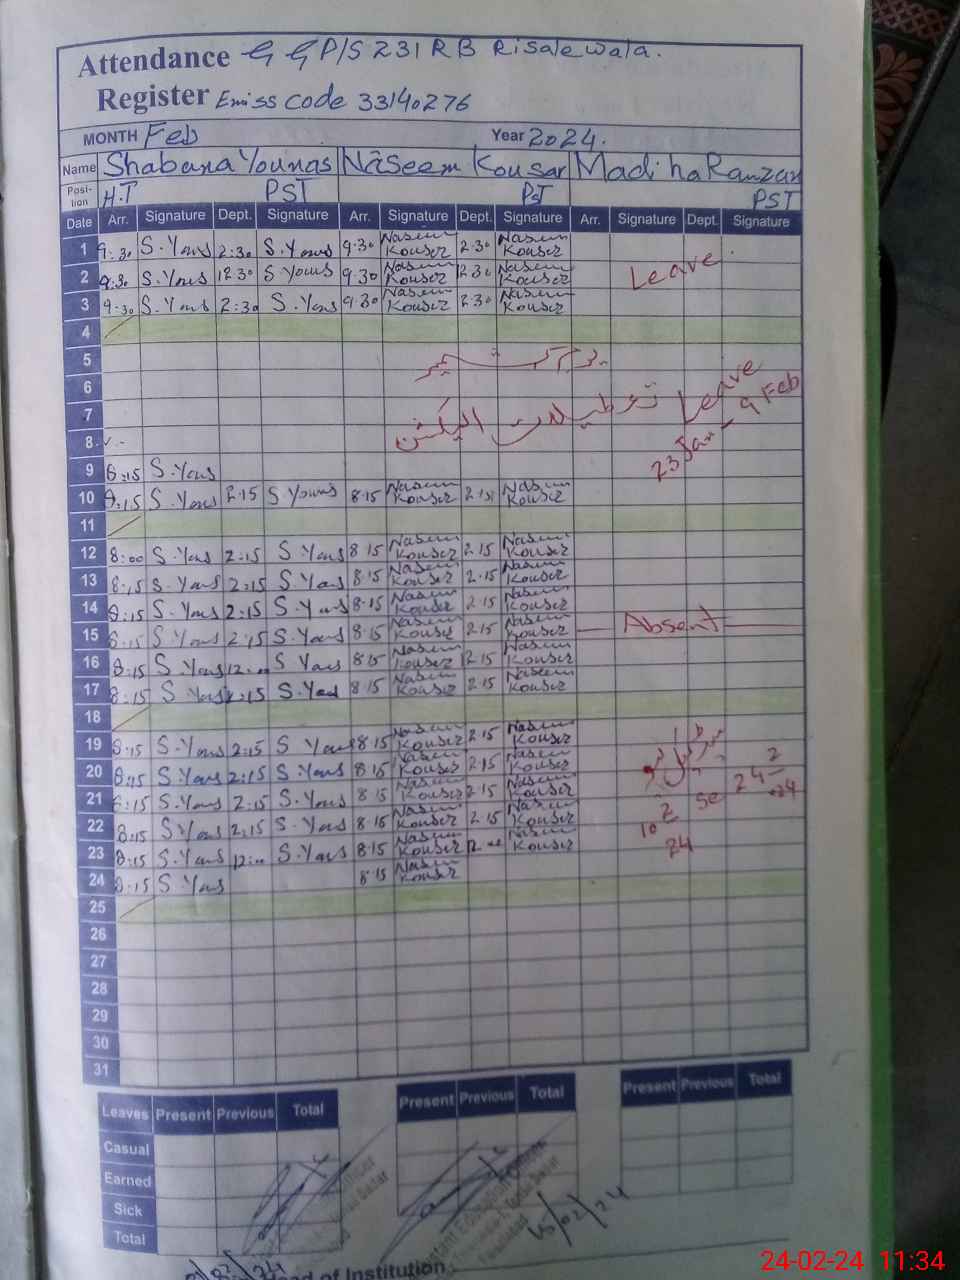 Attendance G G P/S 231 RB Risalewala.
Register Emiss code 33140276
MONTH Feb Year 2024.
Name Shabana Younas Naseem Kousar Madiha Ramzan
Posi-tion H.T PST PST PST
Date Arr. Signature Dept. Signature Arr. Signature Dept. Signature Arr. Signature Dept. Signature
1 9:30 S.Yous 2:30 S.Yous 9.30 Naseem Kouser 2.30 Naseem Kouser
2 9:30 S.Yous 12.30 S Yous 9.30 Naseem Kouser 12.30 Naseem Kouser Leave
3 9:30 S.Yous 2:30 S.Yous 9.30 Naseem Kouser 2.30 Naseem Kouser
4
5
6 Leave
7 تعطیلات الیکشن 23 Jan - 9 Feb
8
9 8:15 S.Yous
10 8:15 S.Yous 2.15 S Youns 8.15 Naseem Kouser 2.15 Naseem Kouser
11
12 8:00 S.Yous 2:15 S.Yous 8.15 Naseem Kouser 2.15 Naseem Kouser
13 8:15 S.Yous 2:15 S.Yous 8.15 Naseem Kouser 2.15 Naseem Kouser
14 8:15 S.Yous 2:15 S.Yous 8.15 Naseem Kouser 2.15 Naseem Kouser
15 8:15 S.Yous 2:15 S.Yous 8.15 Naseem Kouser 2.15 Naseem Kouser Absent
16 8:15 S.Yous 12:00 S Yous 8.15 Naseem Kouser 12.15 Naseem Kouser
17 8:15 S.Yous 2:15 S.Yous 8.15 Naseem Kouser 2.15 Naseem Kouser
18
19 8:15 S.Yous 2:15 S Yous 8.15 Naseem Kouser 2.15 Naseem Kouser
20 8:15 S.Yous 2:15 S.Yous 8.15 Naseem Kouser 2.15 Naseem Kouser 24-2-24
21 8:15 S.Yous 2:15 S.Yous 8.15 Naseem Kouser 2.15 Naseem Kouser se
22 8:15 S.Yous 2:15 S.Yous 8.15 Naseem Kouser 2.15 Naseem Kouser 10-2-24
23 8:15 S.Yous 12:00 S.Yous 8.15 Naseem Kouser 12.00 Naseem Kouser
24 8:15 S.Yous 8.15 Naseem Kouser
25
26
27
28
29
30
31
Leaves Present Previous Total Present Previous Total Present Previous Total
Casual
Earned
Sick
Total
15/02/24
Head of Institution
24-02-24 11:34